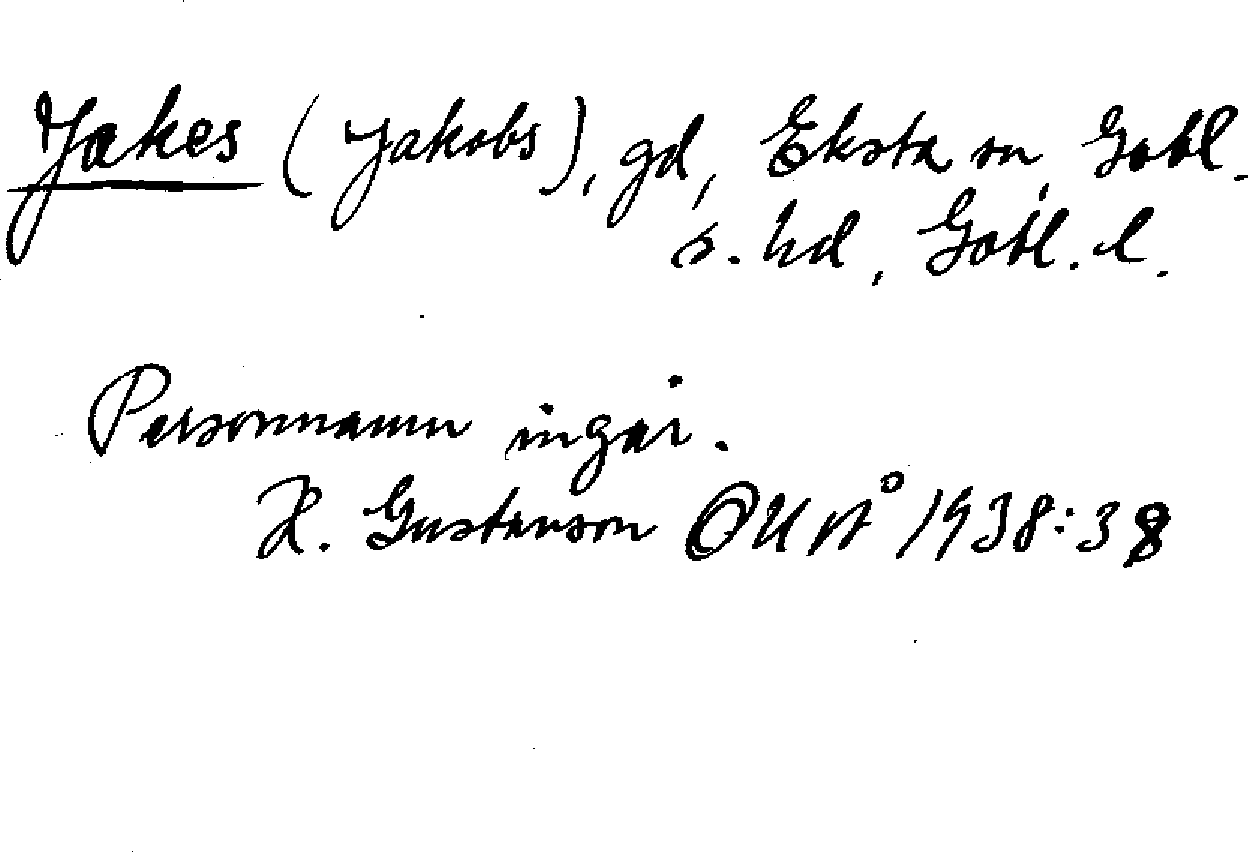 Jakes (Jakobs), gd, Eksta sn, Gotl.
s. hd, Gotl. l.
Personnamn ingår.
H. Gustavson OUÅ 1938:38